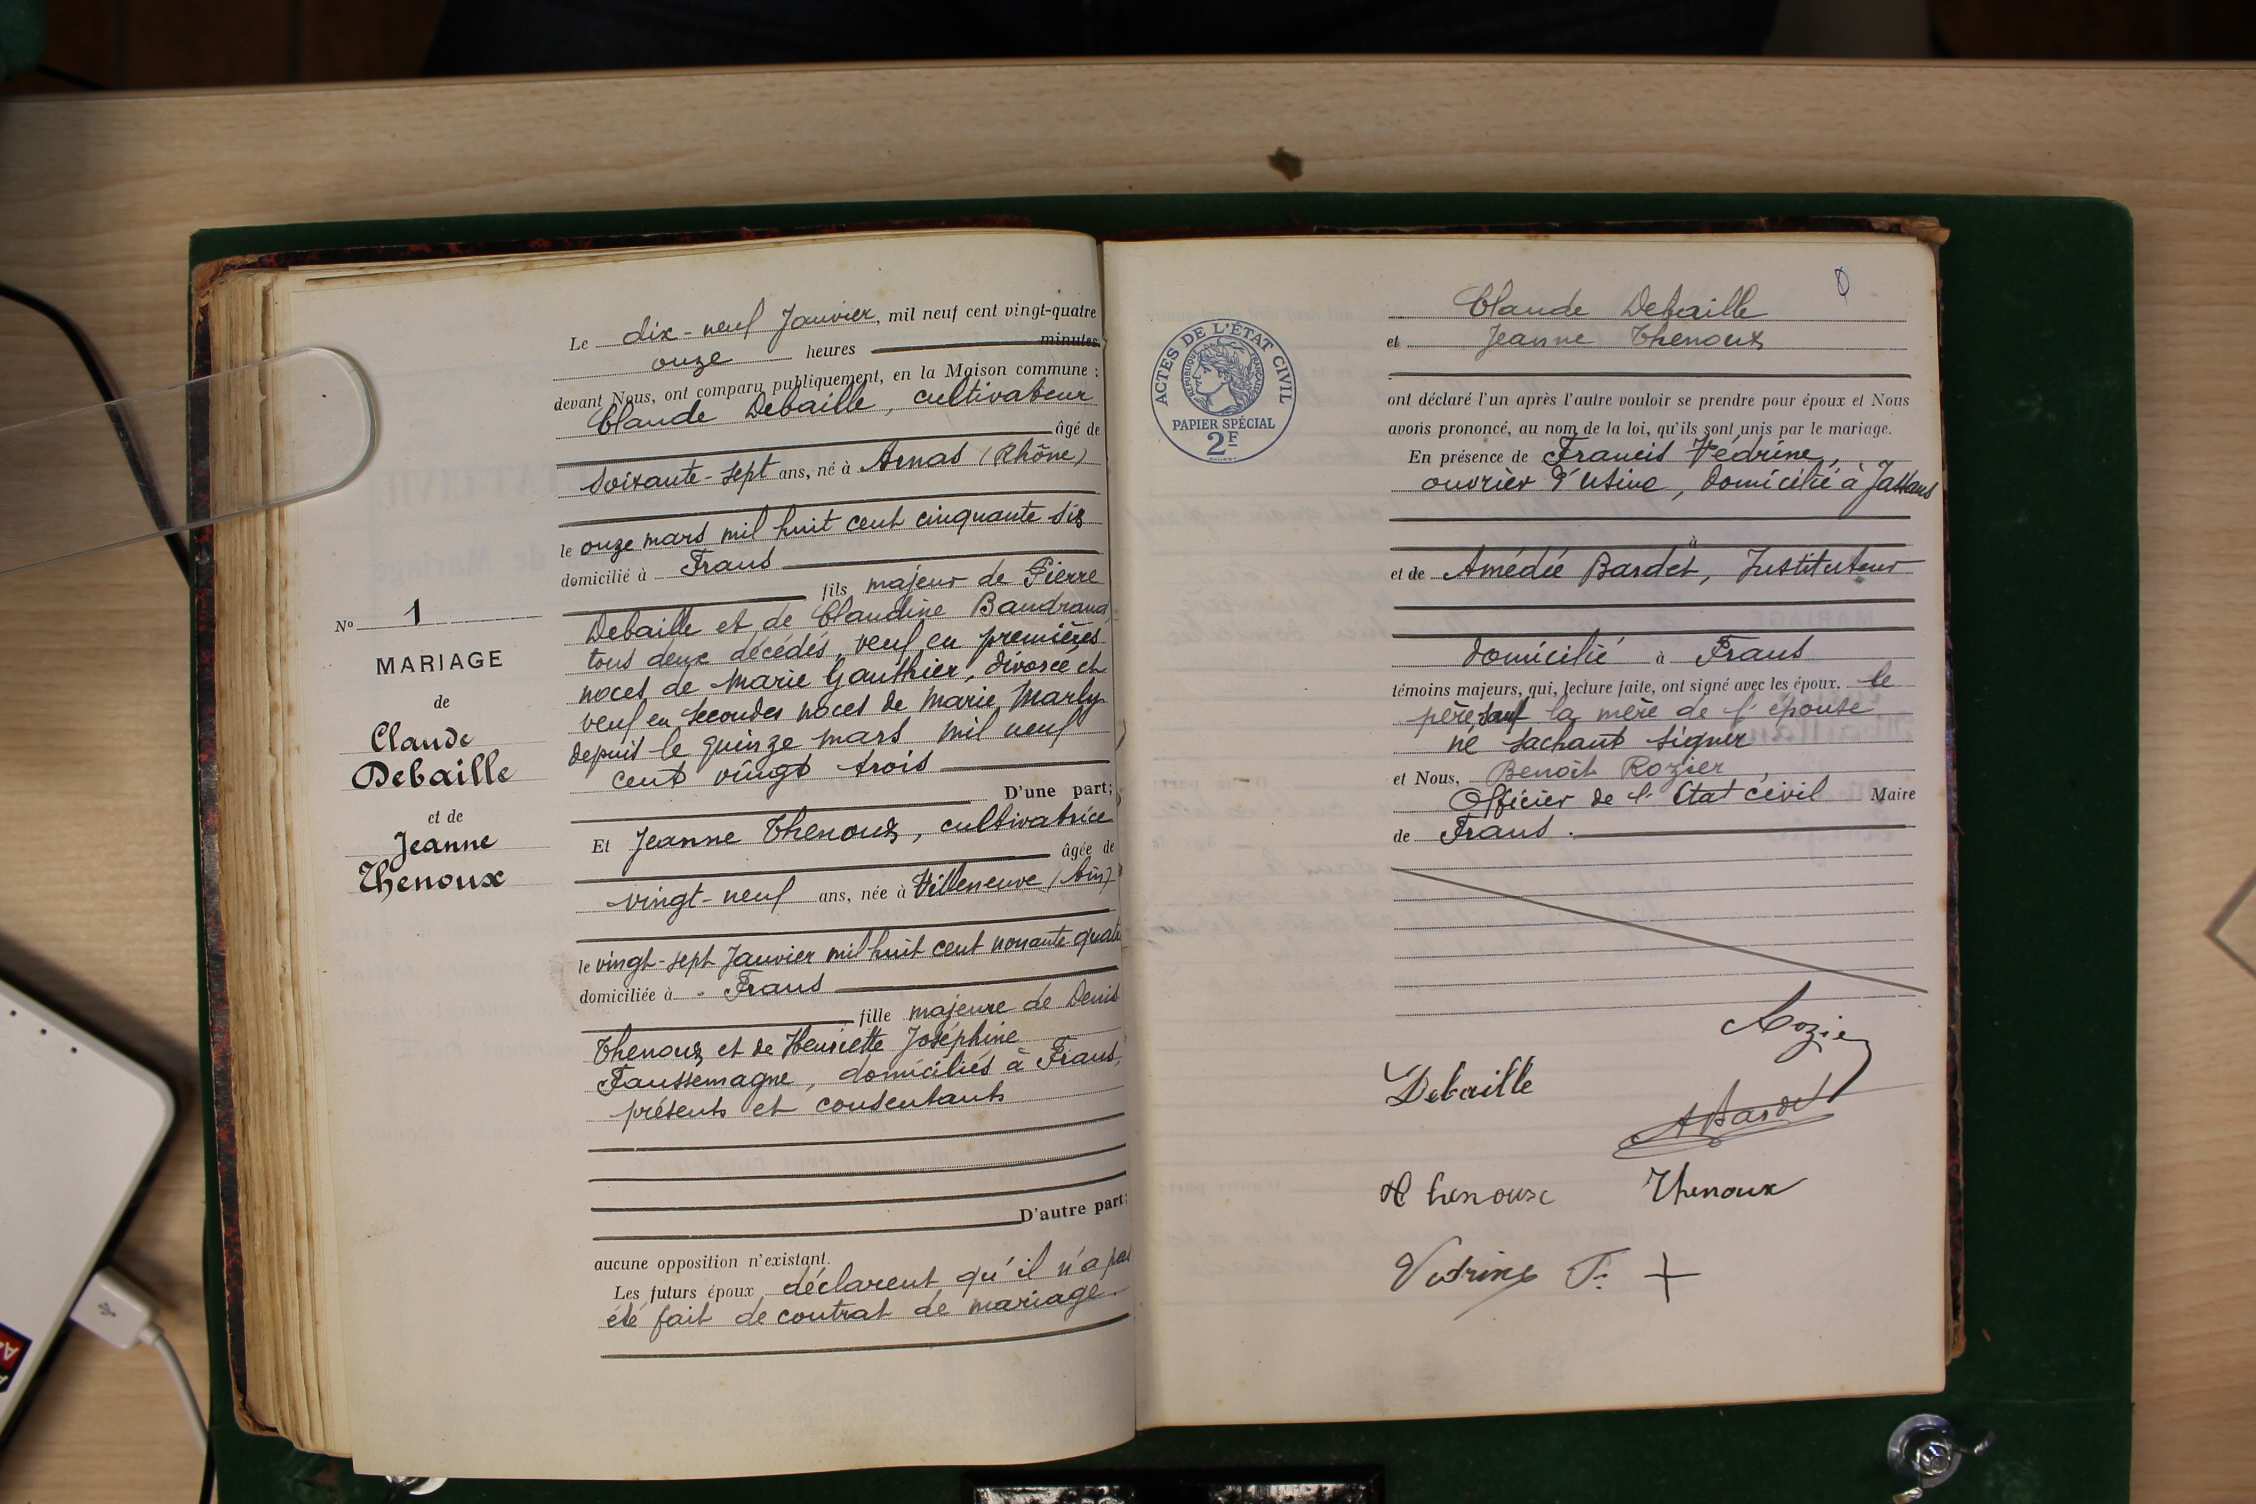 N° 1
MARIAGE
de
Claude
Debaille
et de
Jeanne
Thenoux
Le dix-neuf Janvier, mil neuf cent vingt-quatre
onze heures minutes
devant Nous, ont comparu publiquement, en la Maison commune :
Claude Debaille, cultivateur
âgé de
soixante-sept ans, né à Arnas (Rhône)
le onze mars mil huit cent cinquante six
domicilié à Frans
fils majeur de Pierre
Debaille et de Claudine Baudrand
tous deux décédés, veuf en premières
noces de Marie Gauthier, divorcé et
veuf en secondes noces de Marie Marly
depuis le quinze mars mil neuf
cent vingt trois
D'une part;
Et Jeanne Thenoux, cultivatrice
âgée de
vingt-neuf ans, née à Villeneuve (Ain)
le vingt-sept Janvier mil huit cent nonante quatre
domiciliée à Frans
fille majeure de Denis
Thenoux et de Henriette Joséphine
Faussemagne, domiciliés à Frans,
présents et consentants
D'autre part;
aucune opposition n'existant.
Les futurs époux déclarent qu'il n'a pas
été fait de contrat de mariage.
ACTES DE L'ÉTAT CIVIL
RÉPUBLIQUE FRANÇAISE
PAPIER SPÉCIAL
2F
Claude Debaille
et Jeanne Thenoux
ont déclaré l'un après l'autre vouloir se prendre pour époux et Nous
avons prononcé, au nom de la loi, qu'ils sont unis par le mariage.
En présence de Francis Védrine,
ouvrier d'usine, domicilié à Jassans
à
et de Amédée Bardet, Instituteur
domicilié à Frans
témoins majeurs, qui, lecture faite, ont signé avec les époux. le
père, sauf la mère de l'épouse
ne sachant signer
et Nous, Benoît Rozier,
Officier de l'Etat civil Maire
de Frans.
Rozier
Debaille
A Bardet
Thenoux Thenoux
Vedrine F. +